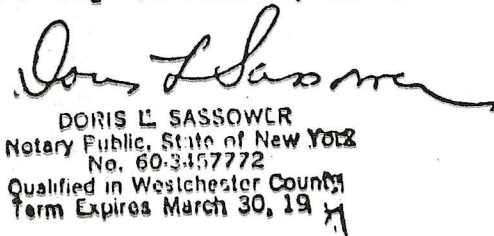 Doris L Sassower
DORIS L. SASSOWER
Notary Public, State of New York
No. 60-3457772
Qualified in Westchester County
Term Expires March 30, 19